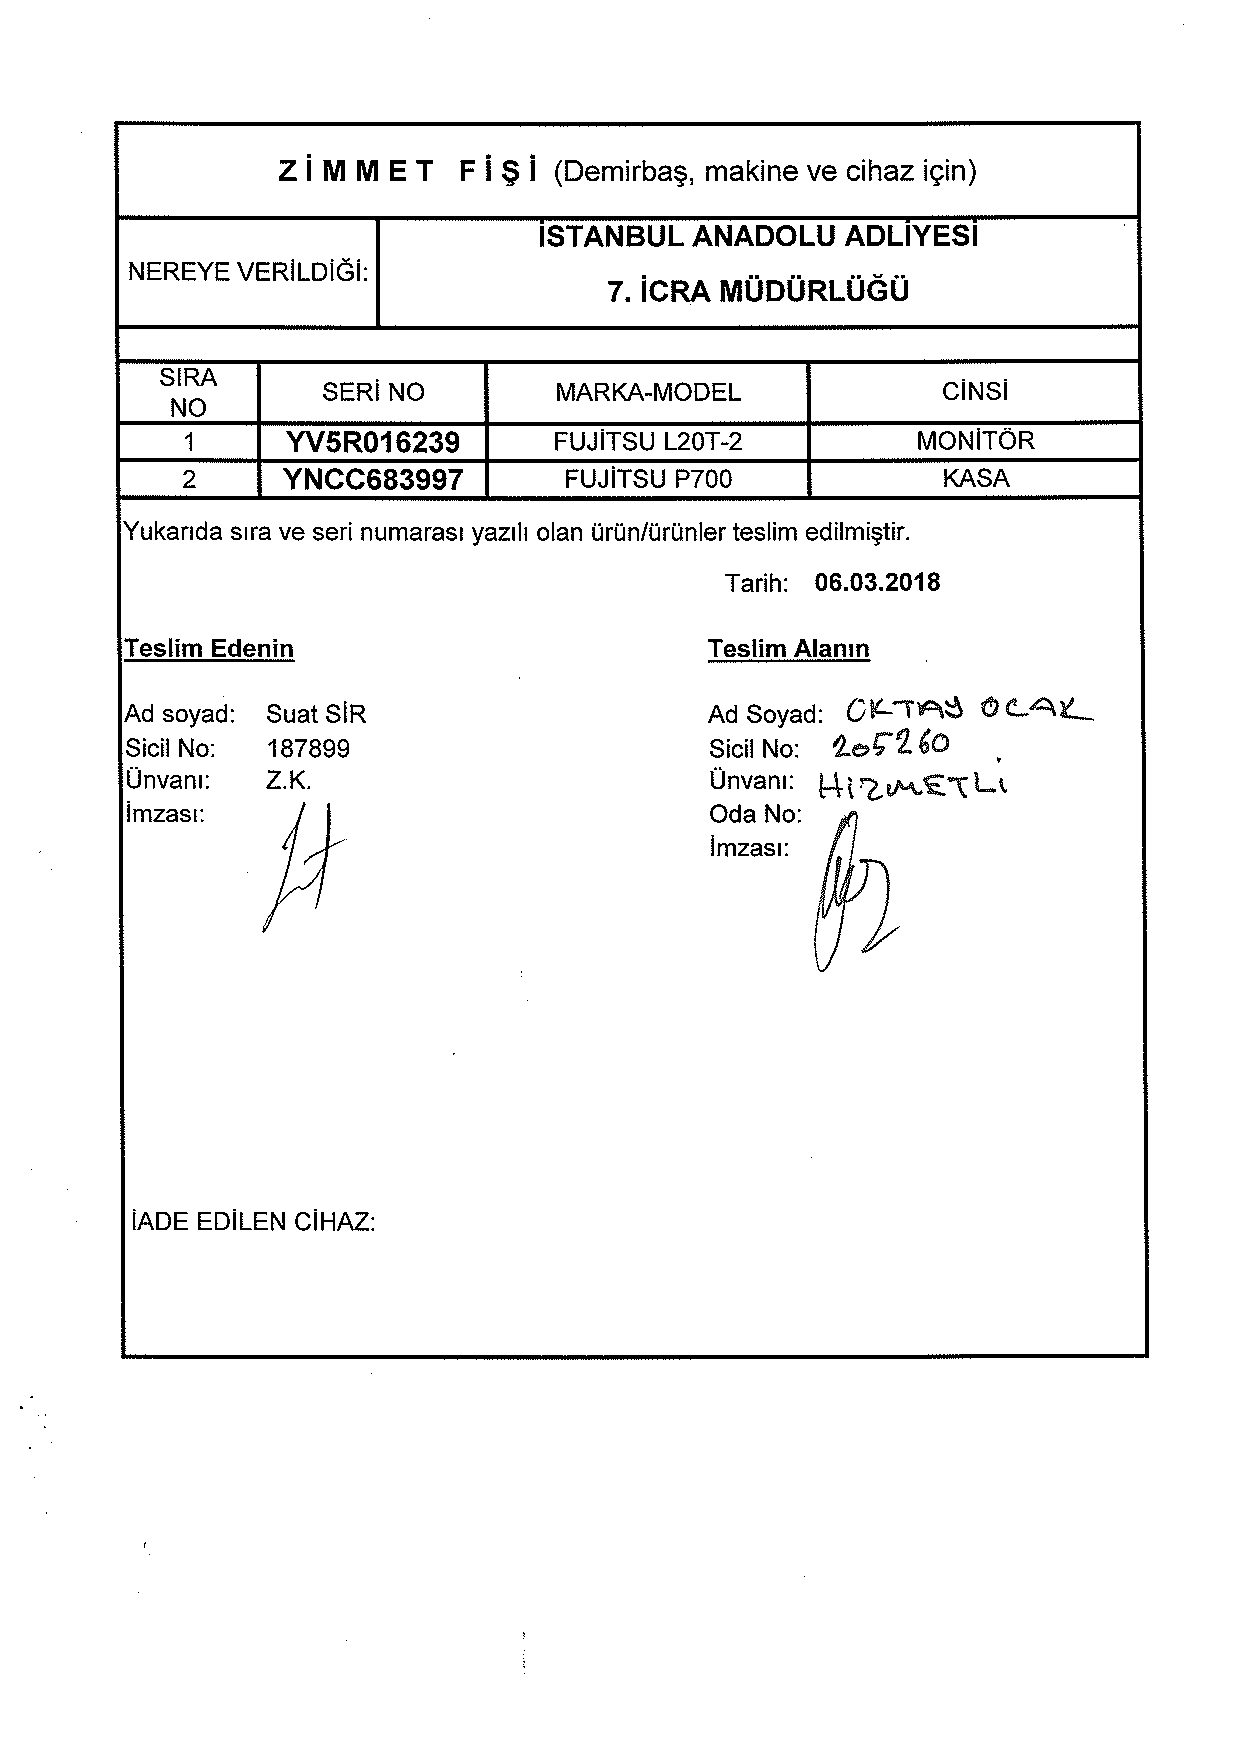 ZİMMET FİŞİ (Demirbaş, makine ve cihaz için)
NEREYE VERİLDİĞİ:
İSTANBUL ANADOLU ADLİYESİ
7. İCRA MÜDÜRLÜĞÜ
SIRA NO SERİ NO MARKA-MODEL CİNSİ
1 YV5R016239 FUJİTSU L20T-2 MONİTÖR
2 YNCC683997 FUJİTSU P700 KASA
Yukarıda sıra ve seri numarası yazılı olan ürün/ürünler teslim edilmiştir.
Tarih: 06.03.2018
Teslim Edenin
Ad soyad: Suat SİR
Sicil No: 187899
Ünvanı: Z.K.
İmzası:
Teslim Alanın
Ad Soyad: OKTAY OCAK
Sicil No: 205260
Ünvanı: HİZMETLİ
Oda No:
İmzası:
İADE EDİLEN CİHAZ: